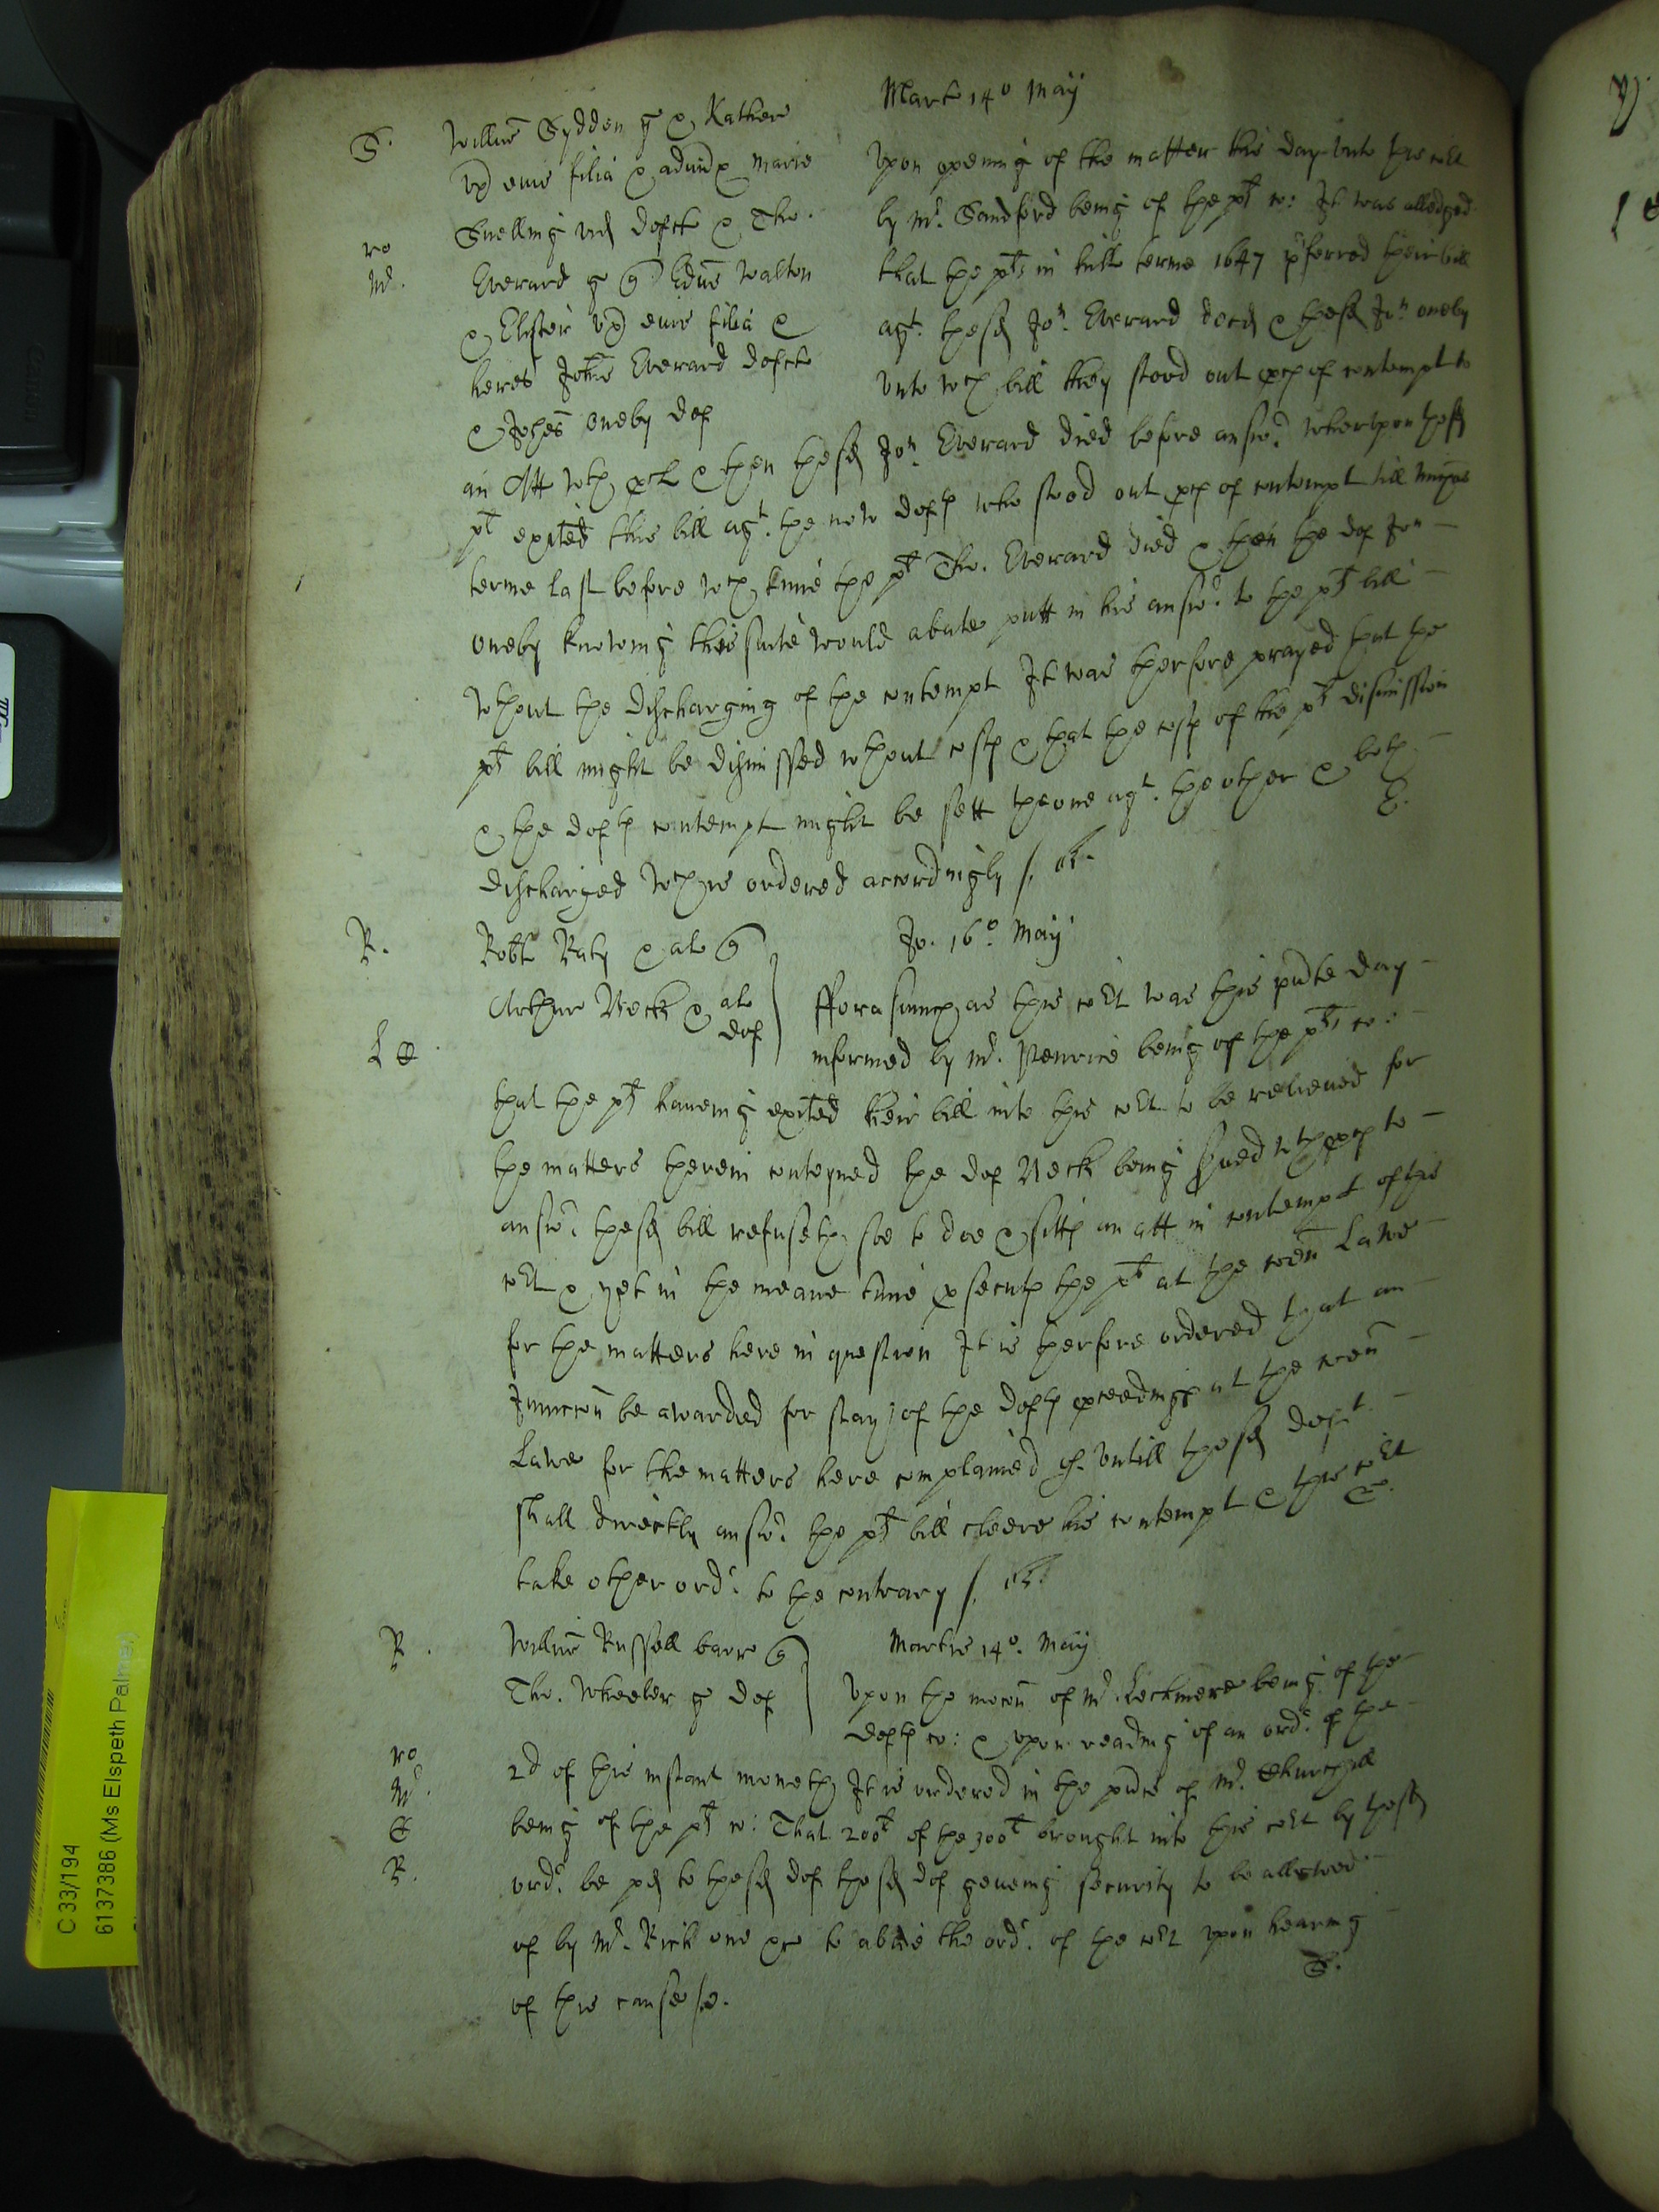 Marte 14o May
S. Willms Sydden g & Kather
vx eius filia & admx Marie
Snelling vid defcte & Tho.
ro
Mr. Everard g qu Edus Walton
& Elister vx eius filia &
heres Johis Everard defcte
& Johes Oneby def
Upon opening of the matter this day unto this cort
by Mr. Sandford being of the plt co: It was alledged
that the plts in hill terme 1647 pferred their bill
agt. the sd Jon. Everard decd & the sd Jon Oneby
unto wch bill they stood out pces of contempt to
an Att wth pcl & then the sd Jon. Everard died before answr wherupon the sd
plt exited this bill agt. the now defts who stood out pces of contempt till
terme last before wch time the plt Tho. Everard died & then the def Jon
Oneby knowing this suite would abate putt in his answr to the plts bill
wthout the discharging of the contempt It was therfore prayed that the
plts bill might be dismissed wthout costs & that the costs of the plts dismission
& the defts contempt might be sett the one agt. the other & both
discharged wch is ordered accordingly /.
R. Robt Raby & al qu
Arthur Neck & al
def
Jo. 16o May
L
fforasmuch as this cort was this pnte day
informed by Mr. Penrice being of the plts co:
that the plts haveing exited their bill into this cort to be releived for
the matters therein conteyned the def Neck being served wth pces to
answr the sd bill refuseth soe to doe & sitts an att in contempt of this
cort & yet in the meane time psecuts the plt at the coen Lawe
for the matters here in question It is therfore ordered that an
Iniuncon be awarded for stay of the defts pceedings at the coen
Lawe for the matters here complained of. untill the sd deft
shall directly answr the plts bill cleere his contempt & this cort
take other ordr. to the contrary /.
R. Willms Russell barr qu
Tho. Wheeler g def
Martis 14o. May
Upon the mocon of Mr. Lechmere being of the
defts co: & upon reading of an ordr. of the
ro
Mr.
R.
2d of this instant moneth It is ordered in the pnce of Mr. Churchill
being of the plts co: That 200l of the 300l brought into this cort by the sd
ordr. be pd to the sd def the sd def geveing security to be allowed
of by Mr. Rich one &c to abide the ordr. of the cort upon hearing
of this cause /.
C 33/194
6137386 (Ms Elspeth Palmer)